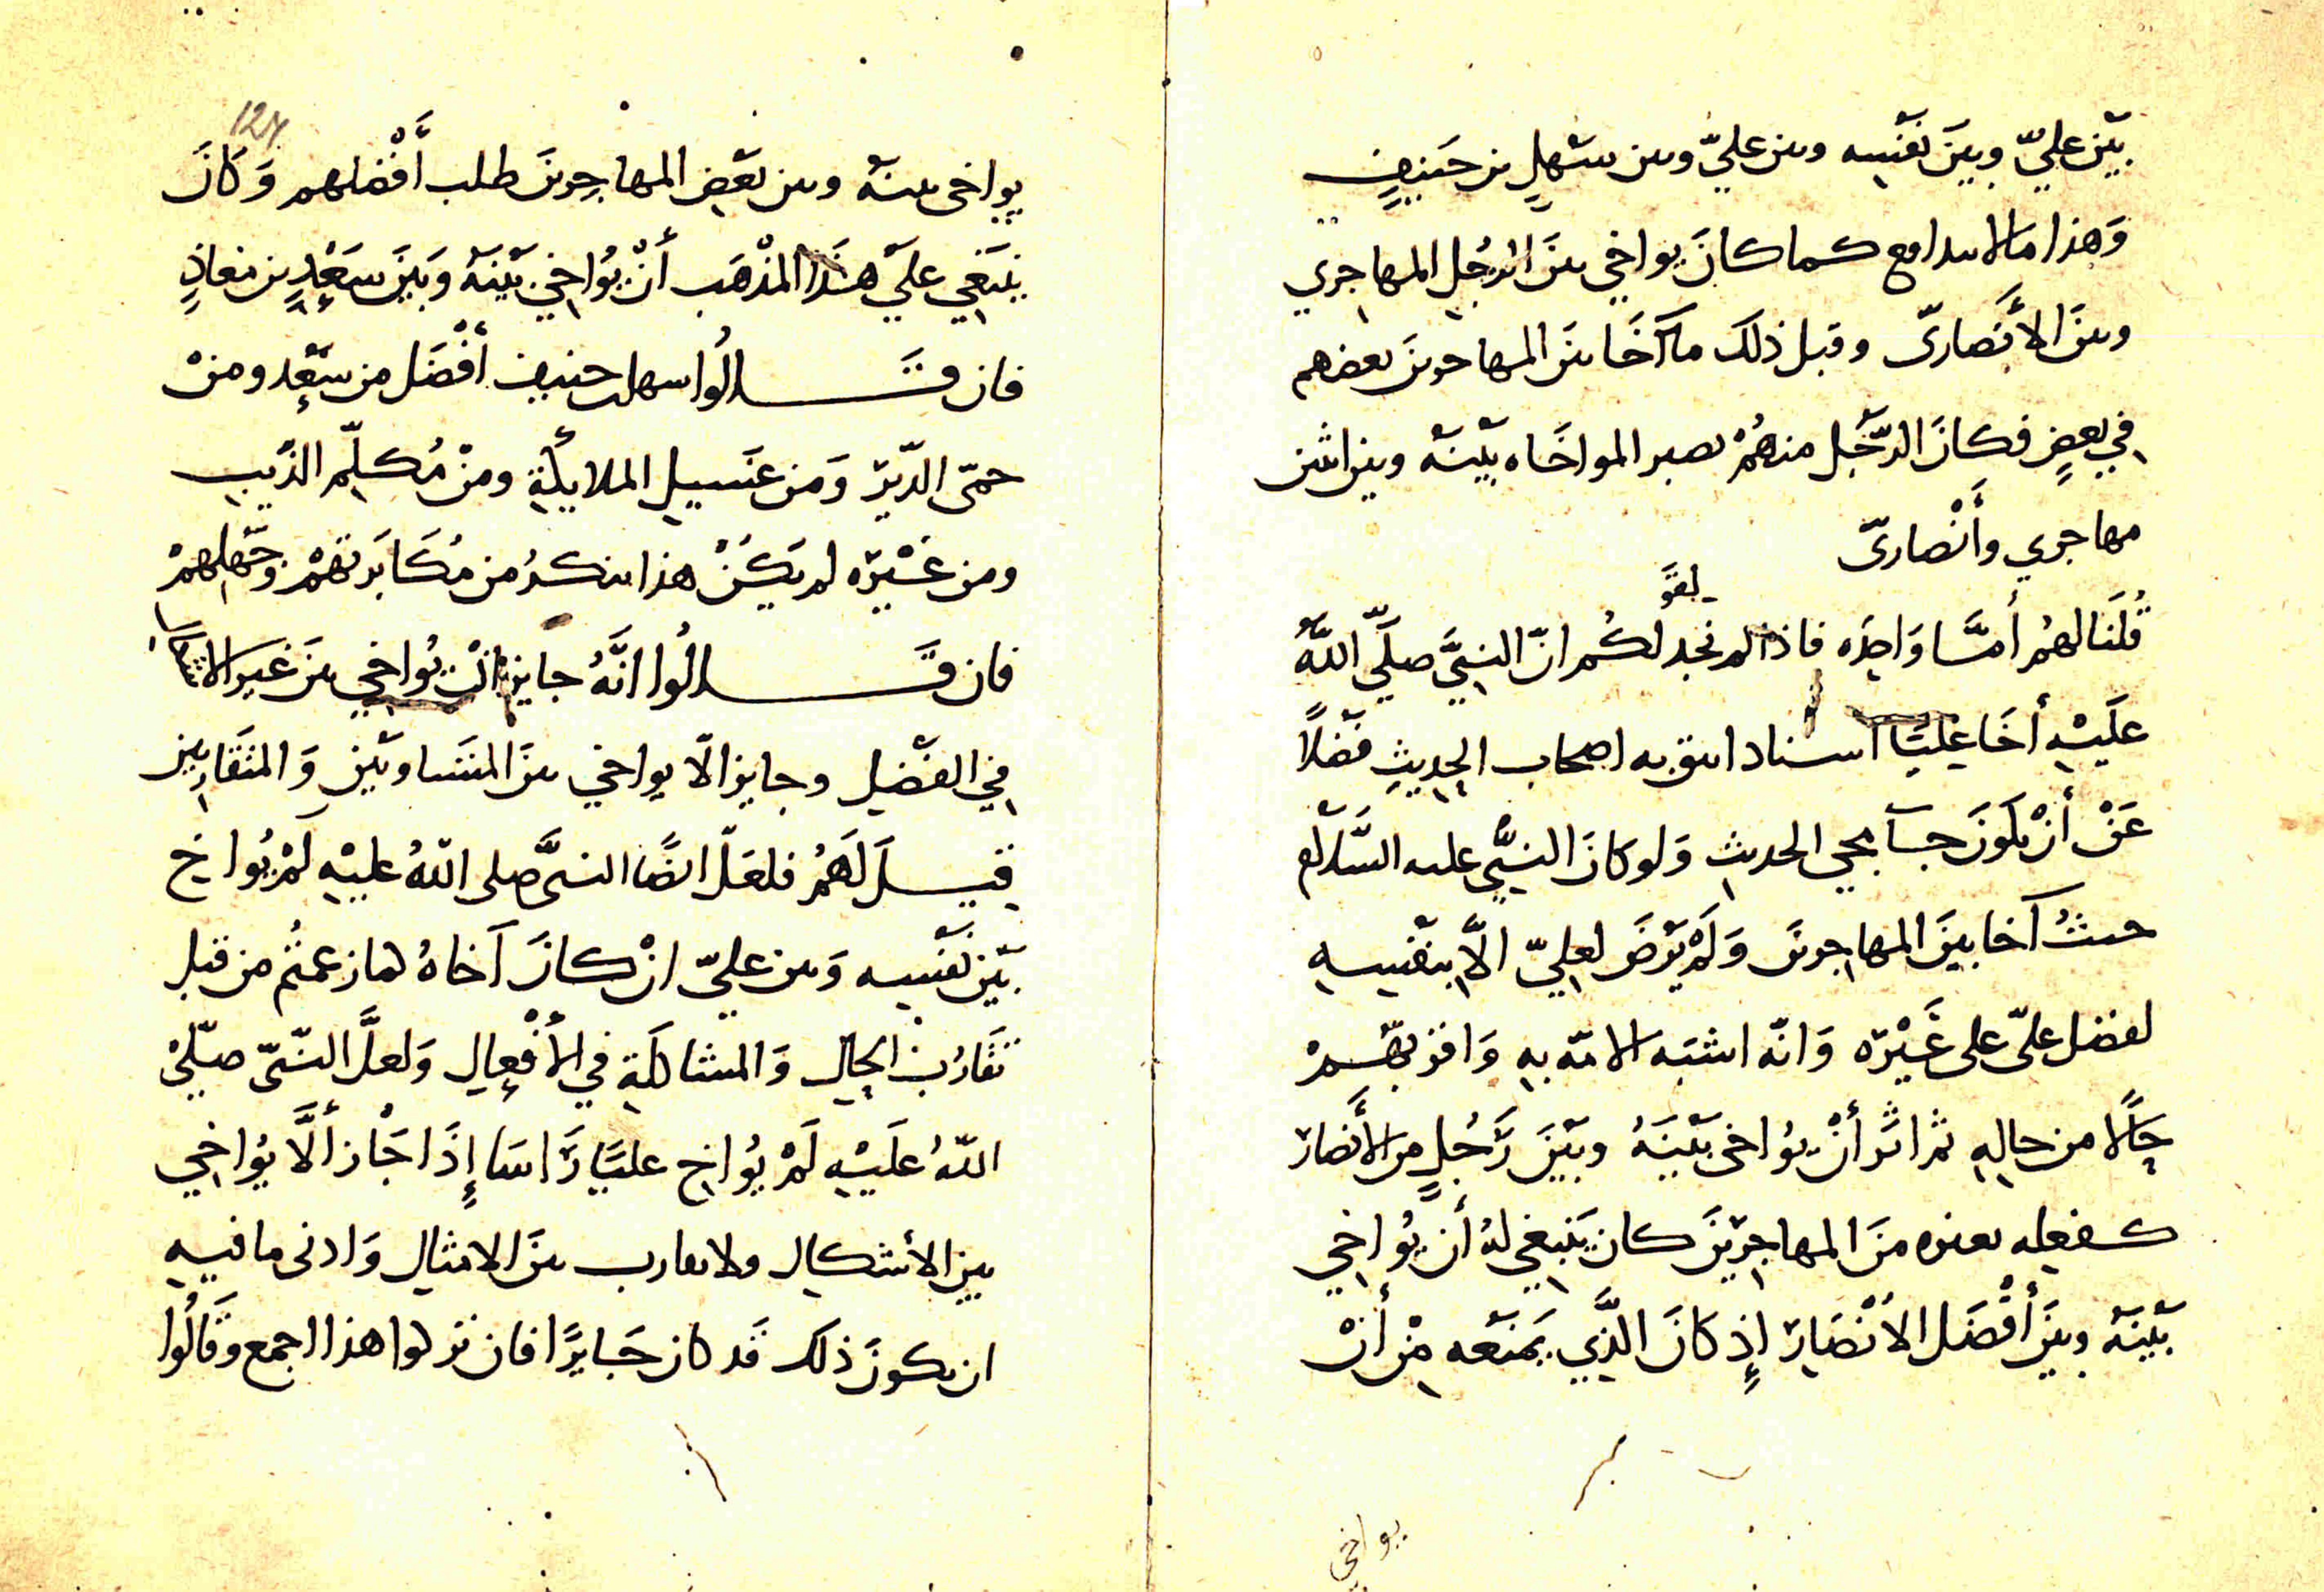 بَيْن عليّ وبينَ نَفْسِه وبين عليّ وبين سَهْلِ بن حَنيفٍ
وَهذا مالا يدافع كما كانَ يواخي بينَ الرجُلِ المهاجري
وبينَ الأَنصاريّ وقبل ذلك ما آخَا بينَ المهاجرينَ بعضهم
في بعضٍ فكانَ الرّجُل منهُمْ تصير المواخَاه بَيْنَه وبين اثنين
مهاجري وأَنْصاريّ
قُلْنَا لهُمْ أمَّا وَاحِدَه فاذا لم نجد لكم انّ النبيَّ صلّى اللَّهُ
عليْهِ أخَا عليًّا اسناد ايثق به اصحاب الحديثِ فضْلاً
عَنْ أنْ يكونَ جــآ مجي الحديثِ وَلو كانَ النبيّ عليه السَّلام
حيثُ آخا بينَ المهاجرينَ وَلَمْ يَرْضَ لعليّ الاَّ بنفْسِهِ
لفضل عليّ على غَيْرِه وَانّه اشبَه الامّه به وَاقربهُـمْ
حَالًا من حالِهِ ثم اثَر أنْ يُواخى بَيْنَهُ وبَيْنَ رَجُلٍ من الأَنصار
كفعلِه بغيره منَ المهاجِرِيْنَ كان يَنبغي لهُ أن يُواخي
بَيْنَه وبينَ أفْضَل الأنْصَارِ إذ كانَ الَّذِي يمنَعه مِنْ أنْ
يواخي
127
يواخى بينَه وبين بَعْضِ المهاجِرينَ طلب أَفْضلهم وَكَانَ
ينبَغي عليَ هذَا المذْهَب أنْ يُواخي بَيْنَه وَبَيْنَ سَعْدٍ بن معاذٍ
فان قَــالُوا سهل بن حنيف أفْضَل من سَعْد ومنْ
حمّى الدّبْرِ وَمن غَسيلِ الملائِكَةِ ومنْ مُكلِّم الذّيبِ
ومن غَيْرِه لم يَكُنْ هذا بنكرٍ من مُكَابَرتهمْ وَجَهلِهمْ
فان قَــالُوا انَّهُ جايز انْ يُواخي بينَ غير الاشكال
في الفضْلِ وجايز الّا يواخي بينَ المتسَاويَيْن وَالمتقَاربين
قيــلَ لَهُمْ فلعَلّ ايضًا النبيَّ صلى اللهُ عليْهِ لمْ يُواخ
بَيْنَ نفْسِه وَبين عليّ انْ كانَ آخاهُ لما زعمتُم من قبل
تقَارُب الحالِ وَالمشاكلَةِ في الأفْعِالِ وَلعلَّ النبّيّ صلّيْ
اللهُ علَيْهِ لَمْ يُواخِ عليًّا رَاسَا إِذَا جَاز ألَّا يُواخي
بين الأشكالِ ولا يقارب بينَ الامثالِ وَادنى ما فيهِ
ان يكونَ ذلك قد كان جَايزًا فان تركوا هذا اجمع وقالُوا